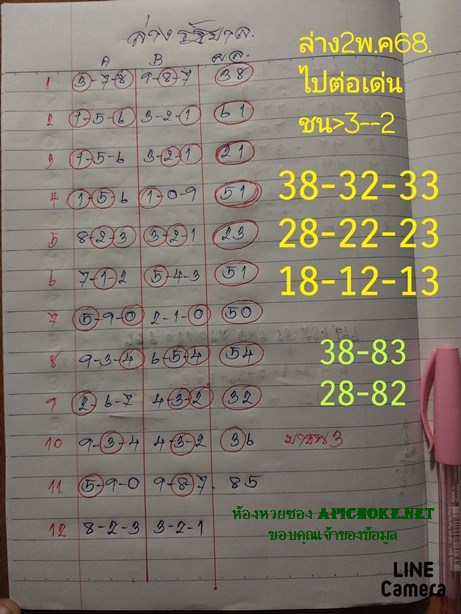 ล่าง รัฐบาล.
A B ผล.
1 3-7-8 9-8-7 38
2 1-5-6 3-2-1 61
3 1-5-6 3-2-1 21
4 1-5-6 1-0-9 51
5 8-2-3 3-2-1 23
6 7-1-2 5-4-3 51
7 5-9-0 2-1-0 50
8 9-3-4 6-5-4 54
9 2-6-7 4-3-2 32
10 9-3-4 4-3-2 36
11 5-9-0 9-8-7. 85
12 8-2-3 3-2-1
ล่าง2พ.ค68.
ไปต่อเด่น
ชน>3--2
38-32-33
28-22-23
18-12-13
38-83
28-82
ห้องหวยซอง APICHOKE.NET
ขอบคุณเจ้าของข้อมูล
LINE
Camera